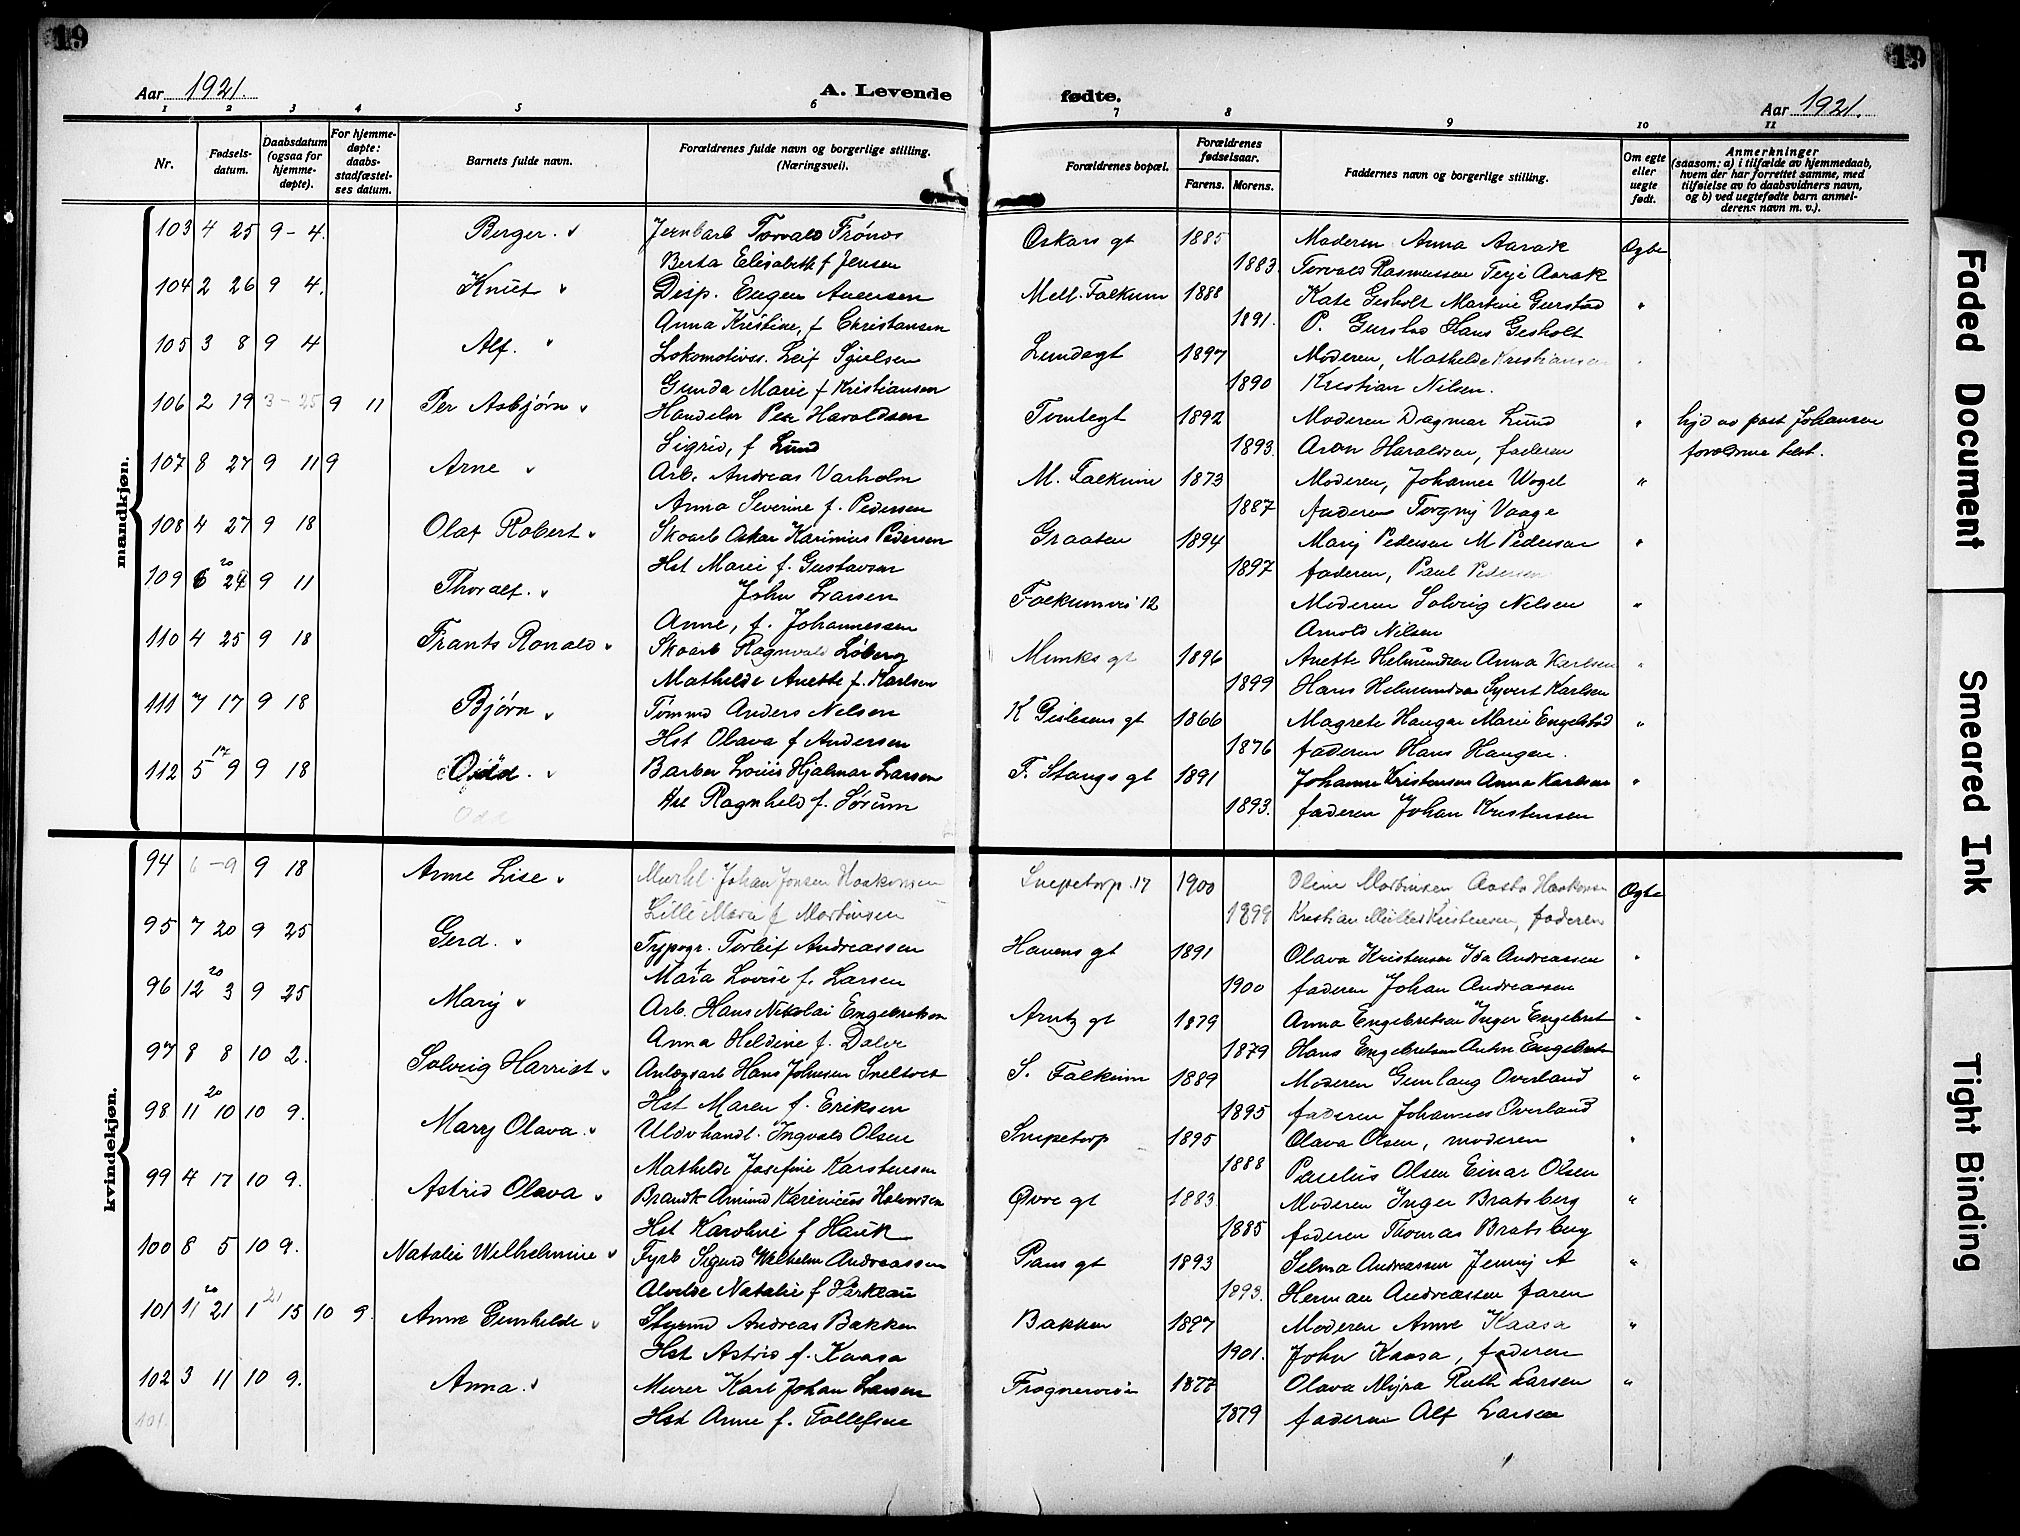 19
19
Aar 1921.
A. Levende fødte.
Aar 1921.
1 2 3 4 5 6 7 8 9 10 11
Nr.
Fødsels-datum.
Daabsdatum (ogsaa for hjemme-døpte).
For hjemme-døpte: daabs-stadfæstel-ses datum.
Barnets fulde navn.
Forældrenes fulde navn og borgerlige stilling. (Næringsvei).
Forældrenes bopæl.
Forældrenes fødselsaar.
Farens. Morens.
Faddernes navn og borgerlige stilling.
Om egte eller uegte født.
Anmerkninger (saasom: a) i tilfælde av hjemmedaab, hvem der har forrettet samme, med tilføielse av to daabsvidners navn, og b) ved uegtefødte barn anmel-derens navn m. v.).
mandkjøn.
103 4 25 9-4. Berger. Jernbarb Torvald Trónes Oskars gt 1885 Moderen Anna Aarak Ogte
Berta Elisabeth f Jensen 1883. Torvald Rasmussen Terje Aarak
104 2 26 9 4. Knut Disp. Eugen Andersen Mell. Falkum 1888 Kate Gesholt Martine Gurstad "
Anna Kristine, f Christansen 1891. P. Gurstad Hans Gesholt
105 3 8 9 4 Alf. Lokomotivss. Leif Sjielsen Lundegt 1897 Moderen, Mathilde Kristiansen
Gunda Marie f Kristiansen 1890 Kristian Nilsen.
106 2 19 3-25 9 11 Per Asbjørn Handelsr Per Haroldsen Tomtegt 1892 Moderen Dagmar Lund " hjd av past Johansen
Sigrid, f Lund 1893. Aron Haraldsen, faderen forældrene test.
107 8 27 9 11 9 Arne Arb. Andreas Varholm M. Falkum 1873 Moderen, Johanne Vogel "
Anna Severine f. Pedersen 1887 faderen Torgny Vaage
108 4 27 9 18 Olaf Robert Skoarb Oskar Karinius Pedersen Graaten 1894 Marij Pedersen M Pedersen "
Hst Marie f. Gustavsen 1897 faderen, Paul Pedersen
109 6 20 24 9 11 Thoralf. John Larsen Falkumvei 12 Moderen Solveig Nilsen "
Anne, f. Johannessen Arnold Nilsen
110 4 25 9 18 Frants Ronald Skoarb Ragnvald Løberg Munks gt 1896 Anette Helmundsen Anna Karlsen "
Mathilde Anette f. Karlsen 1899 Hans Helmundsen Syvert Karlsen
111 7 17 9 18 Bjørn Tømmd Anders Nelsen K Gislesens gt 1866 Magrete Haugen Marie Engelstad "
Hst Olava f Andersen 1876 faderen Hans Haugen.
112 5 17 9 9 18 Odd. Barber Louis Hjalmar Larsen F. Stangs gt 1891 Johanne Kristensen Anna Karlsen "
Odd Hst Ragnhild f. Sørum 1893. faderen Johan Kristensen
kvindekjøn.
94 6-9 9 18 Anne Lise Murhl. Johan Jonsen Haakonsen Snipetorp. 17 1900 Oline Martinsen Aasta Haakonsen Ogte
Lilli Marie f Martinsen 1899 Kristian Müller Kristensen, faderen
95 7 20 9 25 Gerd. Typogr. Torleif Andreassen Havens gt 1891 Olava Kristensen Ida Andreassen "
Marta Lovise f. Larsen 1900 faderen Johan Andreassen
96 12 20 3 9 25 Marij Arb. Hans Nikolai Engebretsen Arntz gt 1879 Anna Engebretsen Inger Engebret "
Anna Heldine f. Dalve 1879 Hans Engebretsen Anton Engebret
97 8 8 10 2. Solveig Harriet Anlægsarb Hans Johnsen Sneltvet S. Falkum 1889 Moderen Gunlaug Overland "
Hst Maren f. Eriksen 1895 faderen Johannes Overland
98 11 20 10 10 9. Mary Olava Uldvhandl. Ingvald Olsen Snipetorp 1895 Olava Olsen, moderen "
Mathilde Josefine Karstensen 1888 Paulus Olsen Einar Olsen
99 4 17 10 9. Astrid Olava Brandk Amund Karinius Halvorsen Øvre gt 1883 Moderen Inger Bratsberg "
Hst Karoline f Hauk 1885 faderen Thomas Bratsberg
100 8 5 10 9. Natalie Wilhelmine Fyrb Sigurd Wilhelm Andreassen Plans gt 1893 Selma Andreassen Jenny A "
Alvilde Natalie f Harkeau 1893. Herman Andreassen faren
101 11 20 21 1 21 15 10 9. Anne Gunhilde Styrmd Andreas Bakken Bakken 1897 Moderen Anne Kaasa "
Hst Astrid f. Kaasa 1901. John Kaasa, faderen
102 3 11 10 9. Anna. Murer Karl Johan Larsen Frognerveien 1877 Olava Myra Ruth Larsen "
101. Hst Anne f. Tollefsen 1879 faderen Alf Larsen
Faded Document
Smeared Ink
Tight Binding